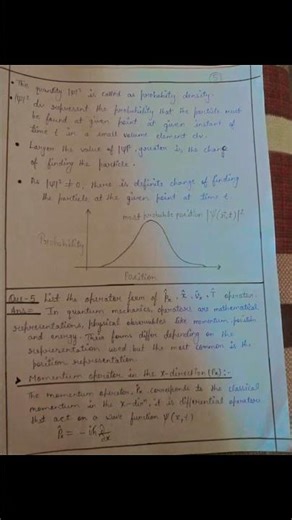 • The quantity |Ψ|² is called as probability density.
• |Ψ|² dv represent the probability that the particle must
be found at given point at given instant of
time t in a small volume element dv.
• Larger the value of |Ψ|², greater is the chance
of finding the particle.
• As |Ψ|² ≠ 0, there is definite chance of finding
the particle at the given point at time t.
most probable position |Ψ(r,t)|²
Probability
Position
Que-5. List the operator form of p̂x, x̂, , T̂ operator.
Ans:- In quantum mechanics operators are mathematical
representations, physical observables like momentum, position
and energy. Their forms differ depending on the
representation used but the most common is the
position representation.
Momentum operator in the x-direction (Px) :-
The momentum operator, P̂x corresponds to the classical
momentum in the x-dirⁿ, it is differential operators
that act on a wave function Ψ(x,t)
P̂x = -iħ ∂/∂x